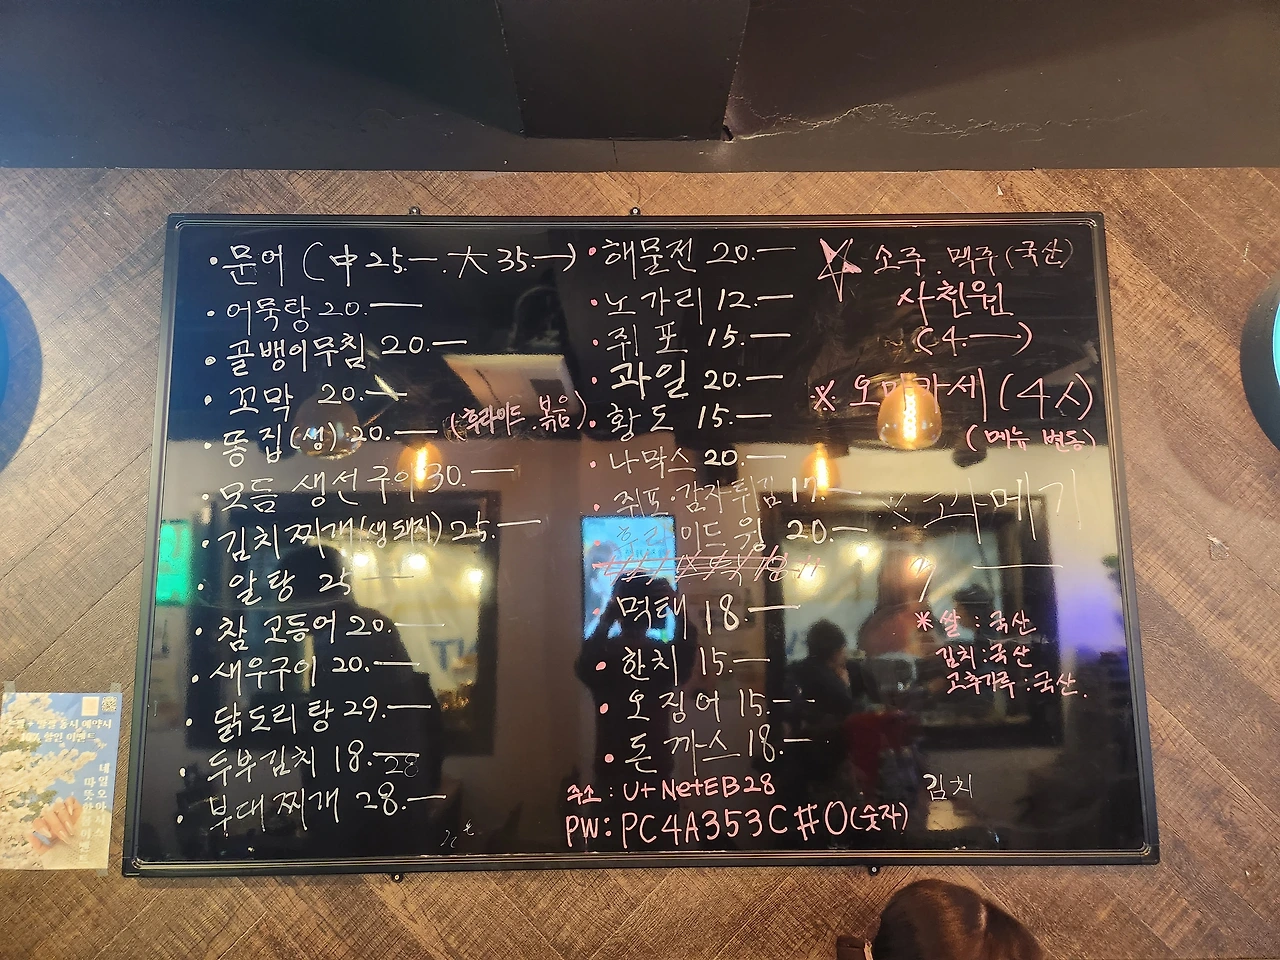 · 문어 (中 25.— . 大 35.—)
· 어묵탕 20.—
· 골뱅이무침 20.—
· 꼬막 20.—
· 똥집(생) 20.— (후라이드 볶음)
· 모듬 생선구이 30.—
· 김치찌개(생돼지) 25.—
· 알탕 25—
· 참고등어 20.—
· 새우구이 20.—
· 닭도리탕 29.—
· 두부김치 18.—
28
· 부대찌개 28.—
· 해물전 20.—
· 노가리 12.—
· 쥐포 15.—
· 과일 20.—
· 황도 15.—
· 나막스 20.—
· 쥐포.감자튀김 17.—
· 후라이드윙 20.—
· 먹태 18.—
· 한치 15.—
· 오징어 15.—
· 돈까스 18.—
주소 : U+NetEB28
PW: PC4A353C#0(숫자)
☆ 소주 . 맥주 (국산)
사천원
(4.—)
※ 오마카세 (4人)
(메뉴 변동)
※ 과메기
※ 쌀 : 국산
김치 : 국산
고추가루 : 국산.
김치
내일 오아시스